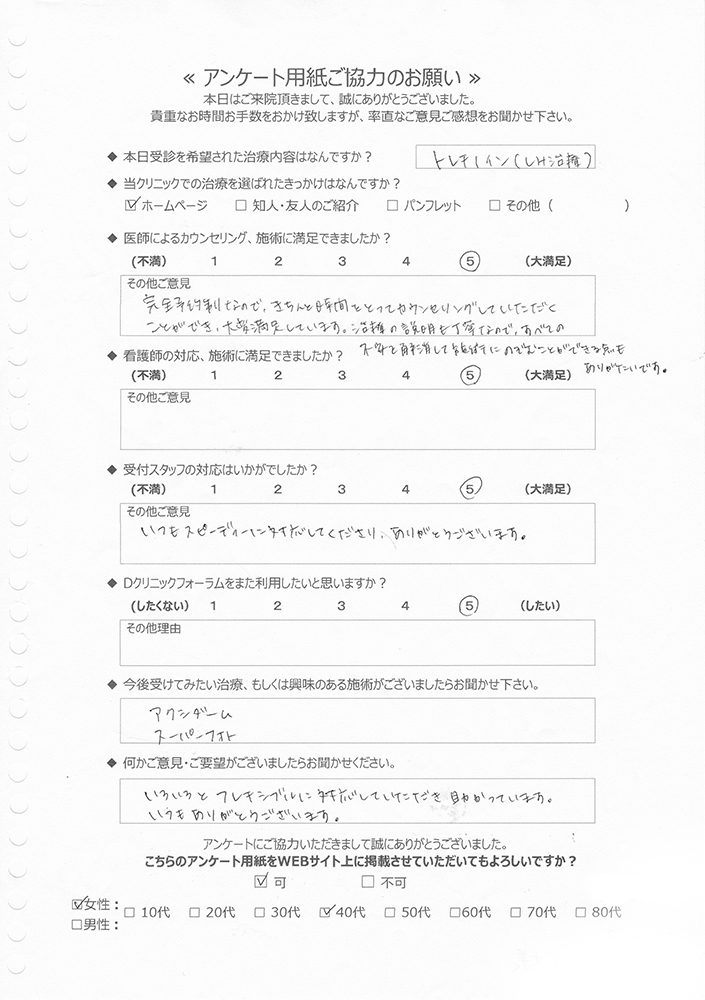 ≪ アンケート用紙ご協力のお願い ≫
本日はご来院頂きまして、誠にありがとうございました。
貴重なお時間お手数をおかけ致しますが、率直なご意見ご感想をお聞かせ下さい。
◆ 本日受診を希望された治療内容はなんですか？ トレチノイン(LH治療)
◆ 当クリニックでの治療を選ばれたきっかけはなんですか？
☑ ホームページ □ 知人・友人のご紹介 □ パンフレット □ その他（ ）
◆ 医師によるカウンセリング、施術に満足できましたか？
(不満) 1 2 3 4 5 (大満足)
その他ご意見
完全予約制なので、きちんと時間をとってカウンセリングしていただく
ことができ、大変満足しています。治療の説明も丁寧なので、すべての
不安を解消して施術にのぞむことができる点も
ありがたいです。
◆ 看護師の対応、施術に満足できましたか？
(不満) 1 2 3 4 5 (大満足)
その他ご意見
◆ 受付スタッフの対応はいかがでしたか？
(不満) 1 2 3 4 5 (大満足)
その他ご意見
いつもスピーディーに対応してくださり、ありがとうございます。
◆ Dクリニックフォーラムをまた利用したいと思いますか？
(したくない) 1 2 3 4 5 (したい)
その他理由
◆ 今後受けてみたい治療、もしくは興味のある施術がございましたらお聞かせ下さい。
アクシダーム
スーパーフォト
◆ 何かご意見・ご要望がございましたらお聞かせください。
いろいろと フレキシブルに対応していただき 助かっています。
いつもありがとうございます。
アンケートにご協力いただきまして誠にありがとうございました。
こちらのアンケート用紙をWEBサイト上に掲載させていただいてもよろしいですか？
☑ 可 □ 不可
☑女性：
□ 10代 □ 20代 □ 30代 ☑40代 □ 50代 □60代 □ 70代 □ 80代
□男性：